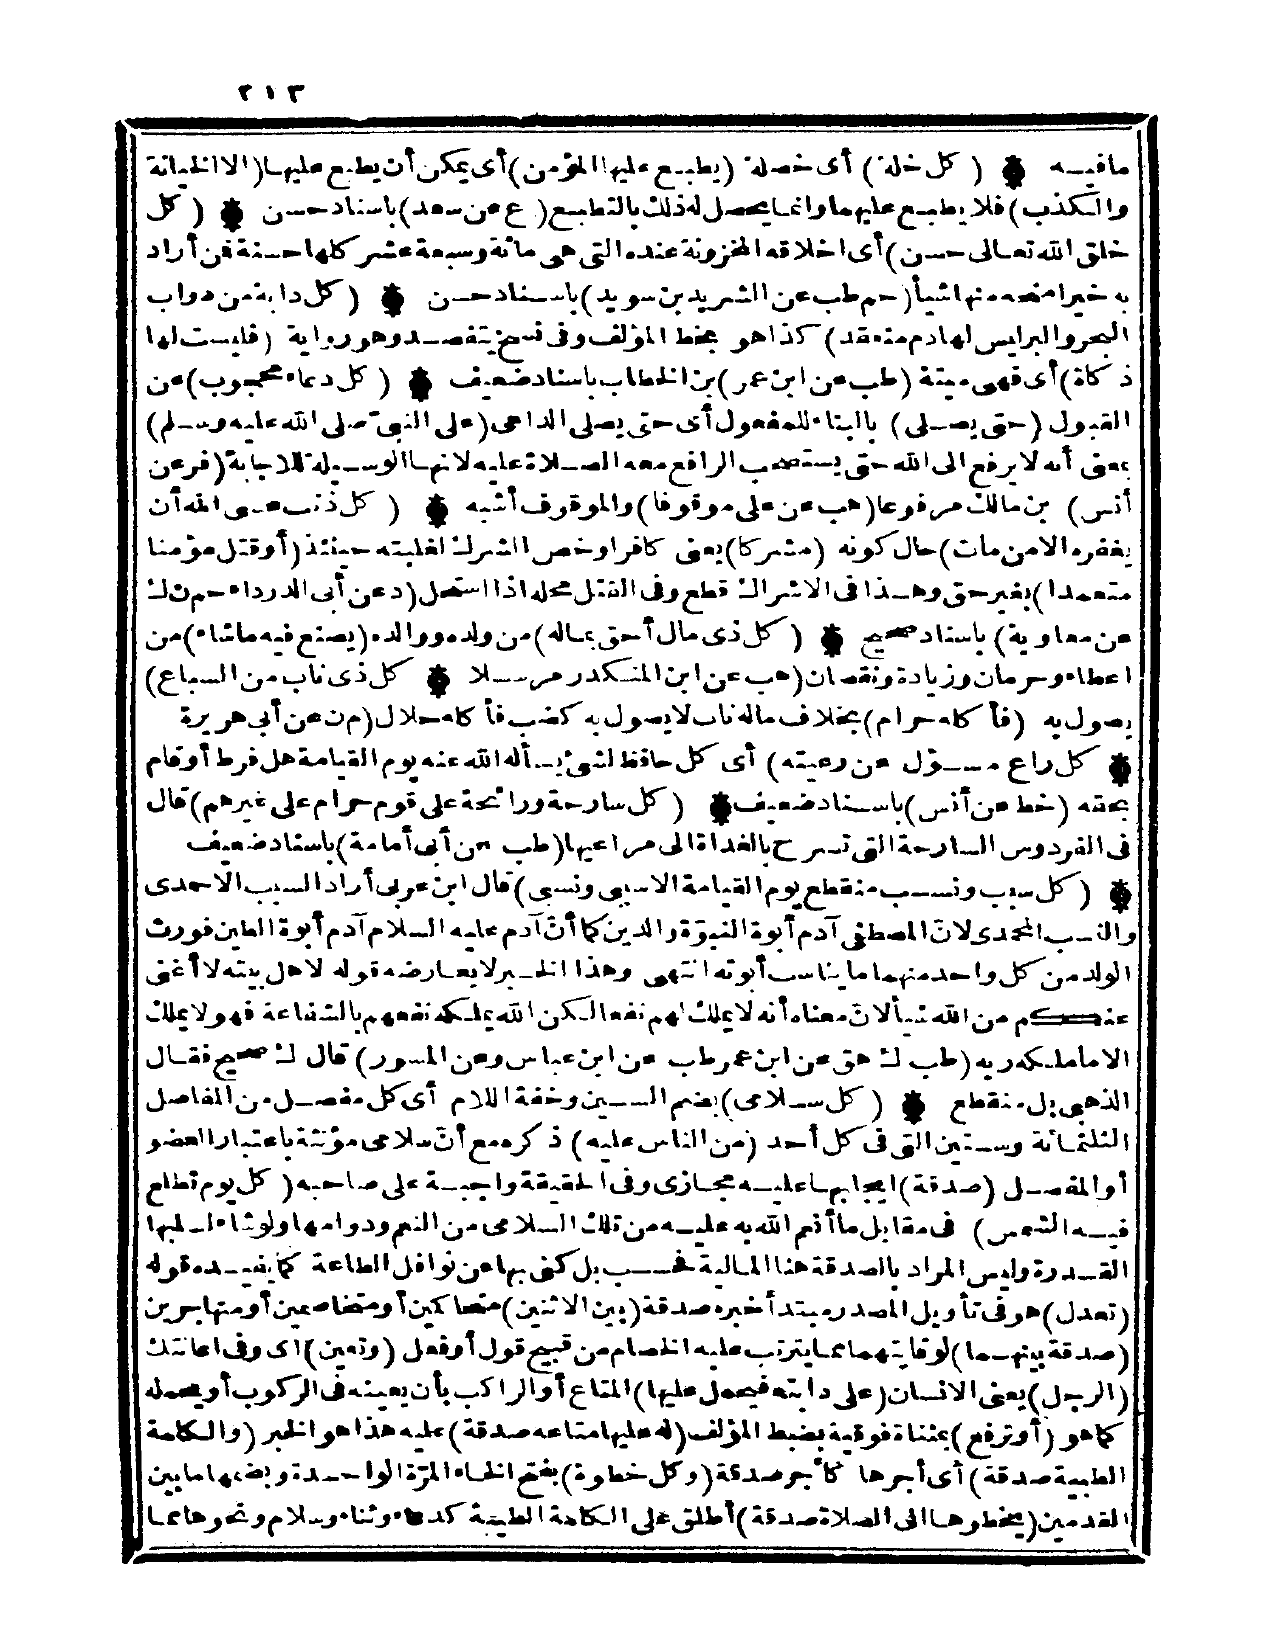 ٢١٣
مافيه ( كل خلة ) أى خصلة (يطبع عليها المؤمن) أى يمكن أن يطبع عليها (الا الخيانة
والكذب) فلا يطبع عليهما وانما يحصل له ذلك بالتطبع (ع عن سعد) باسناد حسن ( كل
خلق الله تعالى حسن) أى اخلاقه المخزونة عنده التى هى مائة وسبعة عشر كلها حسنة فمن أراد
به خيرا منحه منها شيأ (حم طب عن الشريد بن سويد) باسناد حسن ( كل دابة من دواب
البحر والبر ليس لها دم منعقد) كذا هو بخط المؤلف وفى نسخ يتفصد وهو رواية (فليست لها
ذكاة) أى فهى ميتة (طب عن ابن عمر) بن الخطاب باسناد ضعيف ( كل دعاء محجوب) عن
القبول (حتى يصلى) بالبناء للمفعول أى حتى يصلى الداعى (على النبى صلى الله عليه وسلم)
يعنى أنه لا يرفع الى الله حتى يستصحب الرافع معه الصلاة عليه لانها الوسيلة للاجابة (فر عن
أنس) بن مالك مرفوعا (هب عن على موقوفا) والموقوف أشبه ( كل ذنب عسى الله أن
يغفره الا من مات) حال كونه (مشركا) يعنى كافرا وخص الشرك لغلبته حينئذ (أو قتل مؤمنا
متعمدا) بغير حق وهذا فى الاشراك قطع وفى القتل محله اذا استحل (د عن أبى الدرداء حم ن ك
عن معاوية) باسناد صحيح ( كل ذى مال أحق بماله) من ولده ووالده (يصنع فيه ماشاء) من
اعطاء وحرمان وزيادة ونقصان (هب عن ابن المنكدر مرسلا كل ذى ناب من السباع)
يصول به (فأكله حرام) بخلاف ماله ناب لا يصول به كضب فأكله حلال (م ن عن أبى هريرة
كل راع مسؤل عن رعيته) أى كل حافظ لشئ يسأله الله عنه يوم القيامة هل فرط أو قام
بحقه (خط عن أنس) باسناد ضعيف ( كل سارحة ورائحة على قوم حرام على غيرهم) قال
فى الفردوس السارحة التى تسرح بالغداة الى مراعيها (طب عن أبى أمامة) باسناد ضعيف
( كل سبب ونسب منقطع يوم القيامة الا سببى ونسبى) قال ابن عربى أراد السبب الاحمدى
والنسب المحمدى لان المصطفى آدم أبوة النبوة والدين كما أن آدم عليه السلام آدم أبوة الطين فورث
الولد من كل واحد منهما ما يناسب أبوته انتهى وهذا الخبر لا يعارضه قوله لاهل بيته لا أغنى
عنكم من الله شيأ لان معناه أنه لا يملك لهم نفعا لكن الله يملكه نفعهم بالشفاعة فهو لا يملك
الا ما ملكه ربه (طب ك هق عن ابن عمر طب عن ابن عباس وعن المسور) قال ك صحيح فقال
الذهبى بل منقطع ( كل سلامى) بضم السين وخفة اللام أى كل مفصل من المفاصل
الثلثمائة وستين التى فى كل أحد (من الناس عليه) ذكره مع أن سلامى مؤنثة باعتبار العضو
أو المفصل (صدقة) ايجابها عليه مجازى وفى الحقيقة واجبة على صاحبه ( كل يوم تطلع
فيه الشمس) فى مقابل ما أنعم الله به عليه من تلك السلامى من النعم ودوامها ولو شاء لسلبها
القدرة وليس المراد بالصدقة هنا المالية فحسب بل كنى بها عن نوافل الطاعة كما يفيده قوله
(تعدل) هو فى تأويل المصدر مبتدأ خبره صدقة (بين الاثنين) متحاكمين أو متخاصمين أو متهاجرين
(صدقة بينهما) لوقايتهما مما يترتب عليه الخصام من قبيح قول أو فعل (وتعين) أى وفى اعانتك
(الرجل) يعنى الانسان (على دابته فيحمل عليها) المتاع أو الراكب بأن يعينه فى الركوب أو يحمله
كما هو (أو ترفع) بمثناة فوقية بضبط المؤلف (له عليها متاعه صدقة) عليه هذا هو الخبر (والكلمة
الطيبة صدقة) أى أجرها كأجر صدقة (وكل خطوة) بفتح الخاء المرة الواحدة وبضمها ما بين
القدمين (يخطوها الى الصلاة صدقة) أطلق على الكلمة الطيبة كدعاء وثناء وسلام ونحوها مما